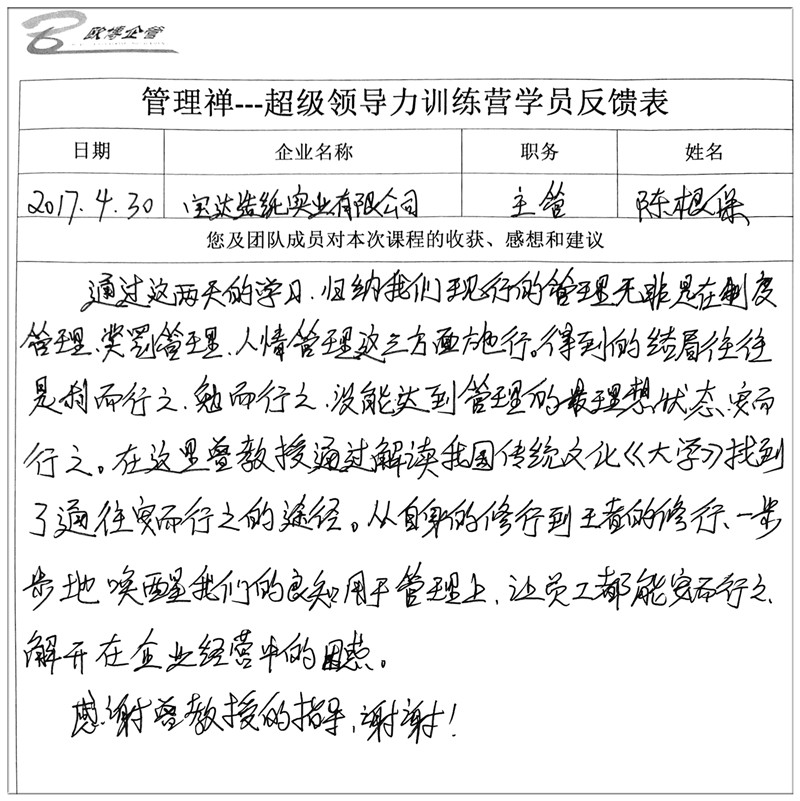 欧博企管
管理禅---超级领导力训练营学员反馈表
日期 企业名称 职务 姓名
2017.4.30 宝达浩纯实业有限公司 主管 陈根保
您及团队成员对本次课程的收获、感想和建议
通过这两天的学习,归纳我们现行的管理无非是在制度
管理、奖罚管理、人情管理这三方面施行。得到的结局往往
是利而行之、勉而行之、没能达到管理的最理想状态、安而
行之。在这里曾教授通过解读我国传统文化《大学》找到
了通往安而行之的途径。从自身的修行到王者的修行、一步
步地唤醒我们的良知用于管理上,让员工都能安而行之、
解开在企业经营中的困惑。
感谢曾教授的指导,谢谢!